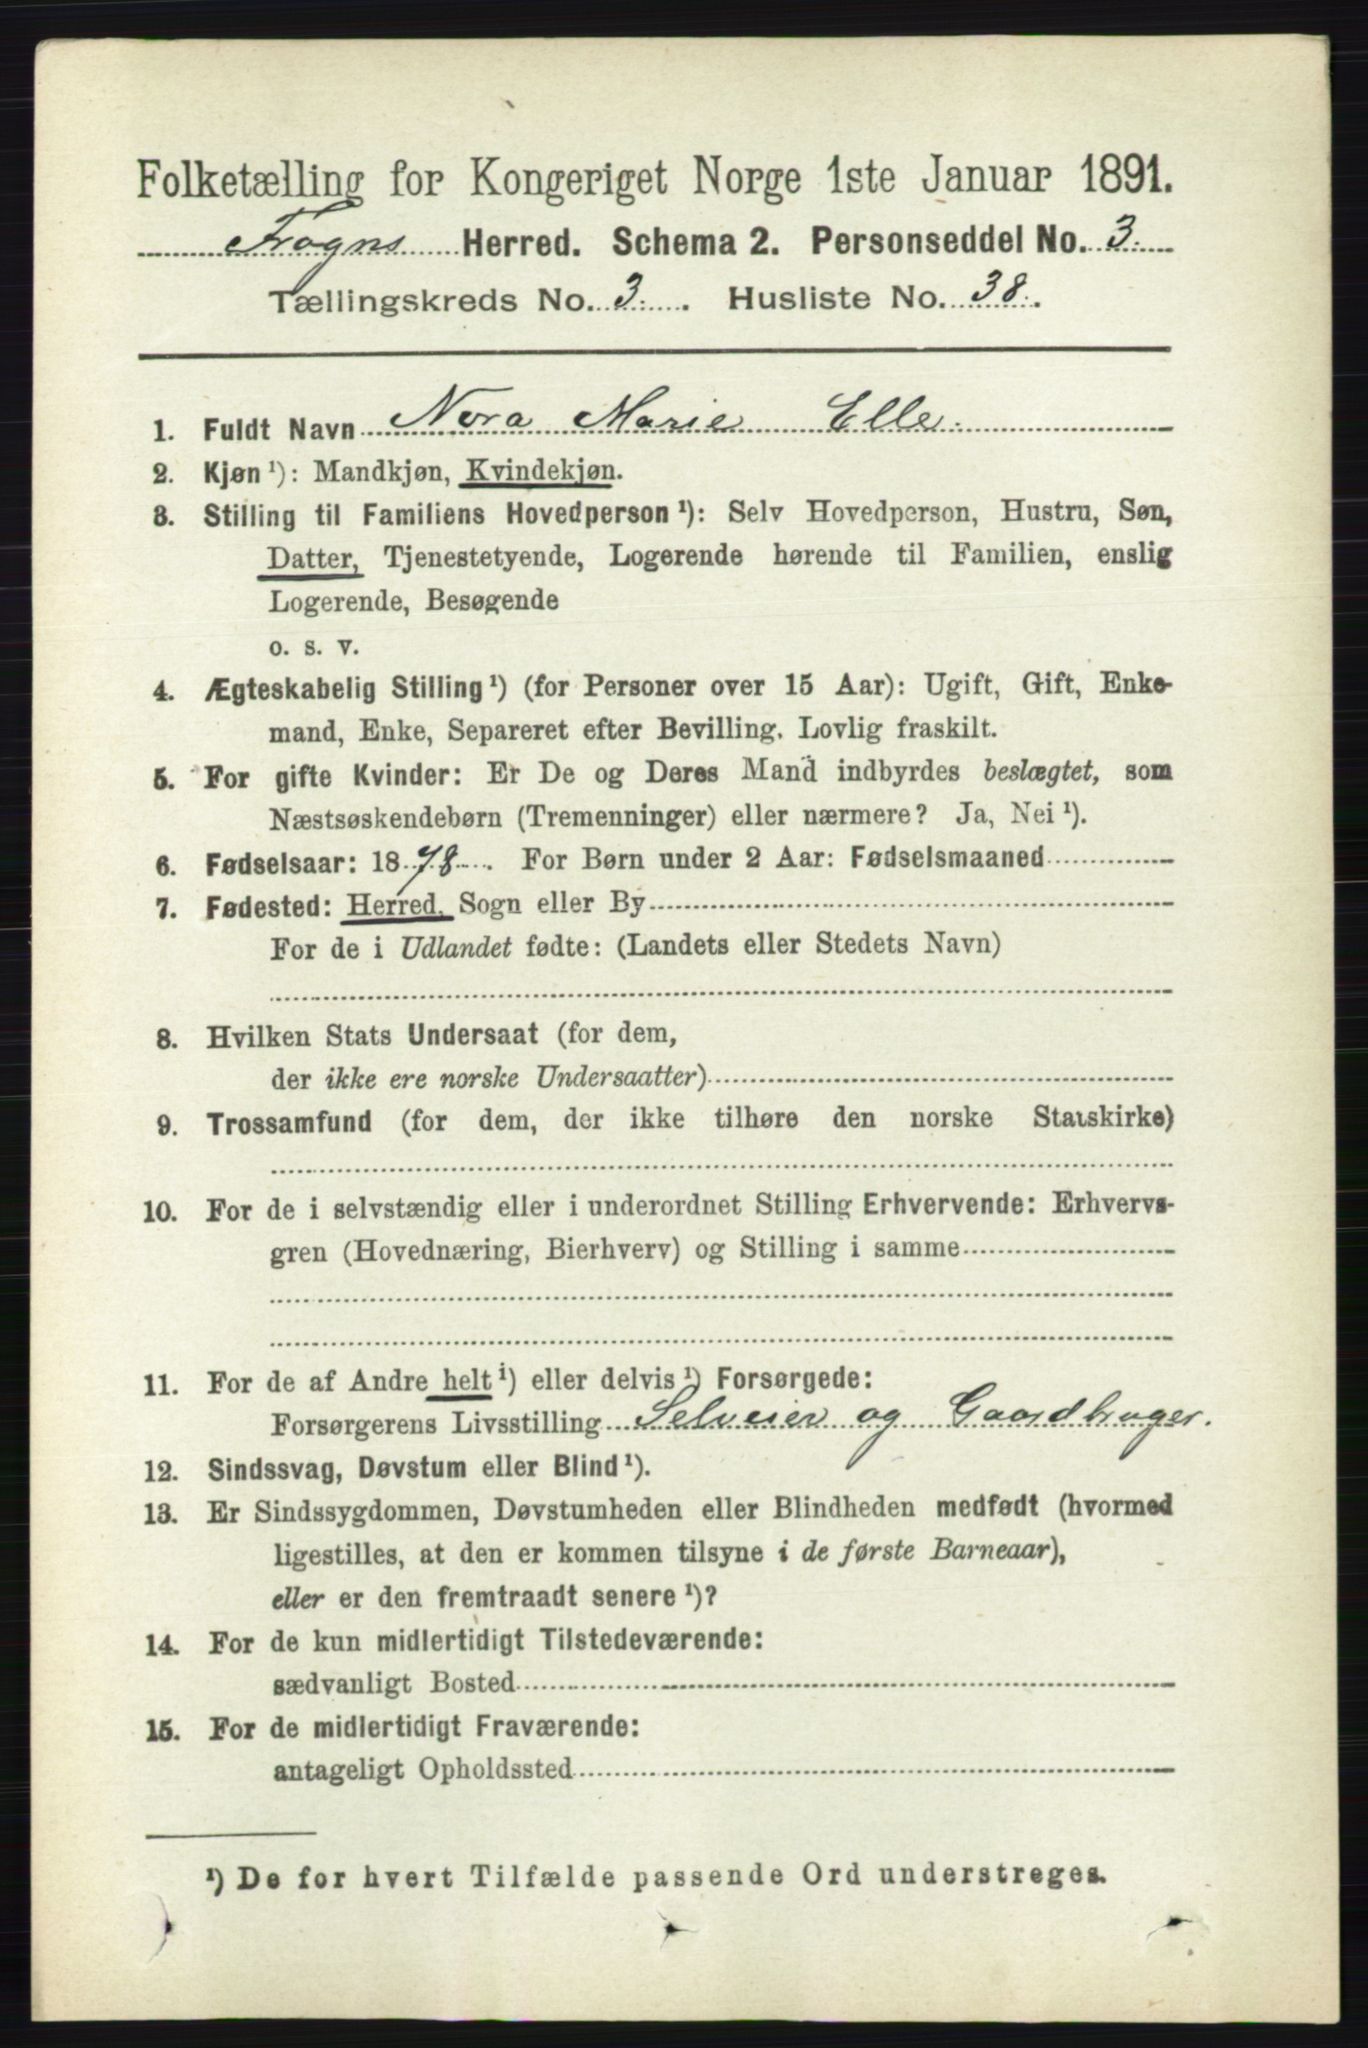 Folketælling for Kongeriget Norge 1ste Januar 1891.
Frogns Herred. Schema 2. Personseddel No. 3.
Tællingskreds No. 3. Husliste No. 38.
1. Fuldt Navn Nora Marie Elle.
2. Kjøn ¹): Mandkjøn, Kvindekjøn.
3. Stilling til Familiens Hovedperson ¹): Selv Hovedperson, Hustru, Søn,
Datter, Tjenestetyende, Logerende hørende til Familien, enslig
Logerende, Besøgende
o. s. v.
4. Ægteskabelig Stilling ¹) (for Personer over 15 Aar): Ugift, Gift, Enke-
mand, Enke, Separeret efter Bevilling. Lovlig fraskilt.
5. For gifte Kvinder: Er De og Deres Mand indbyrdes beslægtet, som
Næstsøskendebørn (Tremenninger) eller nærmere? Ja, Nei ¹).
6. Fødselsaar: 1878. For Børn under 2 Aar: Fødselsmaaned
7. Fødested: Herred, Sogn eller By
For de i Udlandet fødte: (Landets eller Stedets Navn)
8. Hvilken Stats Undersaat (for dem,
der ikke ere norske Undersaatter)
9. Trossamfund (for dem, der ikke tilhøre den norske Statskirke)
10. For de i selvstændig eller i underordnet Stilling Erhvervende: Erhvervs-
gren (Hovednæring, Bierhverv) og Stilling i samme
11. For de af Andre helt ¹) eller delvis ¹) Forsørgede:
Forsørgerens Livsstilling Selveier og Gaardbruger.
12. Sindssvag, Døvstum eller Blind ¹).
13. Er Sindssygdommen, Døvstumheden eller Blindheden medfødt (hvormed
ligestilles, at den er kommen tilsyne i de første Barneaar),
eller er den fremtraadt senere ¹)?
14. For de kun midlertidigt Tilstedeværende:
sædvanligt Bosted
15. For de midlertidigt Fraværende:
antageligt Opholdssted
¹) De for hvert Tilfælde passende Ord understreges.